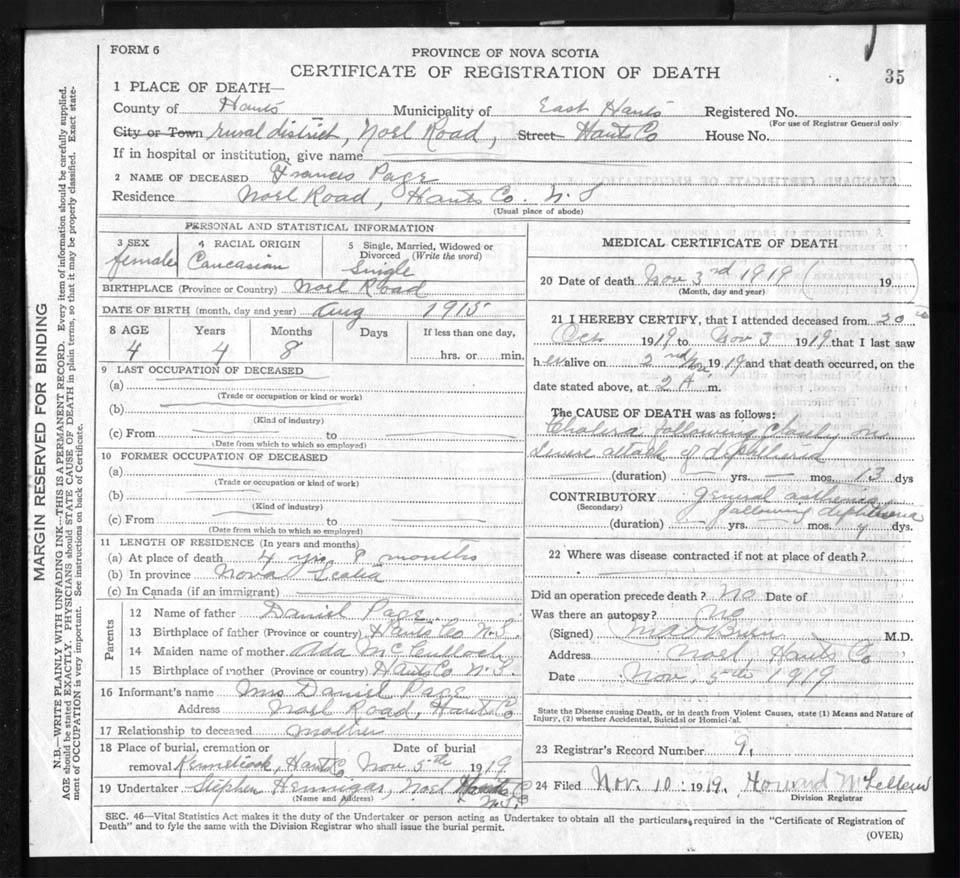 FORM 6
PROVINCE OF NOVA SCOTIA
CERTIFICATE OF REGISTRATION OF DEATH
35
1 PLACE OF DEATH—
County of Hants Municipality of East Hants Registered No.
(For use of Registrar General only)
City or Town rural district, Noel Road, Street Hants Co House No.
If in hospital or institution, give name
2 NAME OF DECEASED Frances Page
Residence Noel Road, Hants Co. N. S
(Usual place of abode)
PERSONAL AND STATISTICAL INFORMATION
3 SEX female
4 RACIAL ORIGIN Caucasian
5 Single, Married, Widowed or Divorced (Write the word) Single
BIRTHPLACE (Province or Country) Noel Road
DATE OF BIRTH (month, day and year) Aug 1915
8 AGE Years Months Days If less than one day,
4 4 8 hrs. or min.
9 LAST OCCUPATION OF DECEASED
(a)
(Trade or occupation or kind or work)
(b)
(Kind of industry)
(c) From to
(Date from which to which so employed)
10 FORMER OCCUPATION OF DECEASED
(a)
(Trade or occupation or kind of work)
(b)
(Kind of industry)
(c) From to
(Date from which to which so employed)
11 LENGTH OF RESIDENCE (In years and months)
(a) At place of death 4 yrs. 8 months
(b) In province Nova Scotia
(c) In Canada (if an immigrant)
Parents
12 Name of father Daniel Page.
13 Birthplace of father (Province or country) Hants Co N.S.
14 Maiden name of mother Alda McCulloch
15 Birthplace of mother (Province or country) Hants Co N.S.
16 Informant's name Mrs Daniel Page
Address Noel Road, Hants Co
17 Relationship to deceased mother
18 Place of burial, cremation or Date of burial
removal Kennetcook, Hants Co Nov 5th 1919.
19 Undertaker Stephen Hennigar, Noel Hants Co N.S.
(Name and Address)
MEDICAL CERTIFICATE OF DEATH
20 Date of death Nov 3rd 1919 ( 19 )
(Month, day and year)
21 I HEREBY CERTIFY, that I attended deceased from 20th
Oct 1919 to Nov 3 1919 that I last saw
her alive on 2nd Nov 1919 and that death occurred, on the
date stated above, at 2 A m.
The CAUSE OF DEATH was as follows:
Cholera following closely on
severe attack of diphtheria
(duration) yrs. mos. 13 dys
CONTRIBUTORY general asthenia
(Secondary) following diphtheria
(duration) yrs. mos. dys.
22 Where was disease contracted if not at place of death?
Did an operation precede death? No Date of
Was there an autopsy? No
(Signed) O'Brien M.D.
Address Noel, Hants Co
Date Nov. 5th 1919
State the Disease causing Death, or in death from Violent Causes, state (1) Means and Nature of
Injury, (2) whether Accidental, Suicidal or Homicidal.
23 Registrar's Record Number 9,
24 Filed Nov. 10. 1919. Howard McLellan
Division Registrar
SEC. 46—Vital Statistics Act makes it the duty of the Undertaker or person acting as Undertaker to obtain all the particulars required in the "Certificate of Registration of
Death" and to fyle the same with the Division Registrar who shall issue the burial permit.
(OVER)
MARGIN RESERVED FOR BINDING
N.B.—WRITE PLAINLY WITH UNFADING INK—THIS IS A PERMANENT RECORD. Every item of information should be carefully supplied.
AGE should be stated EXACTLY. PHYSICIANS should STATE CAUSE OF DEATH in plain terms, so that it may be properly classified. Exact state-
ment of OCCUPATION is very important. See instructions on back of Certificate.